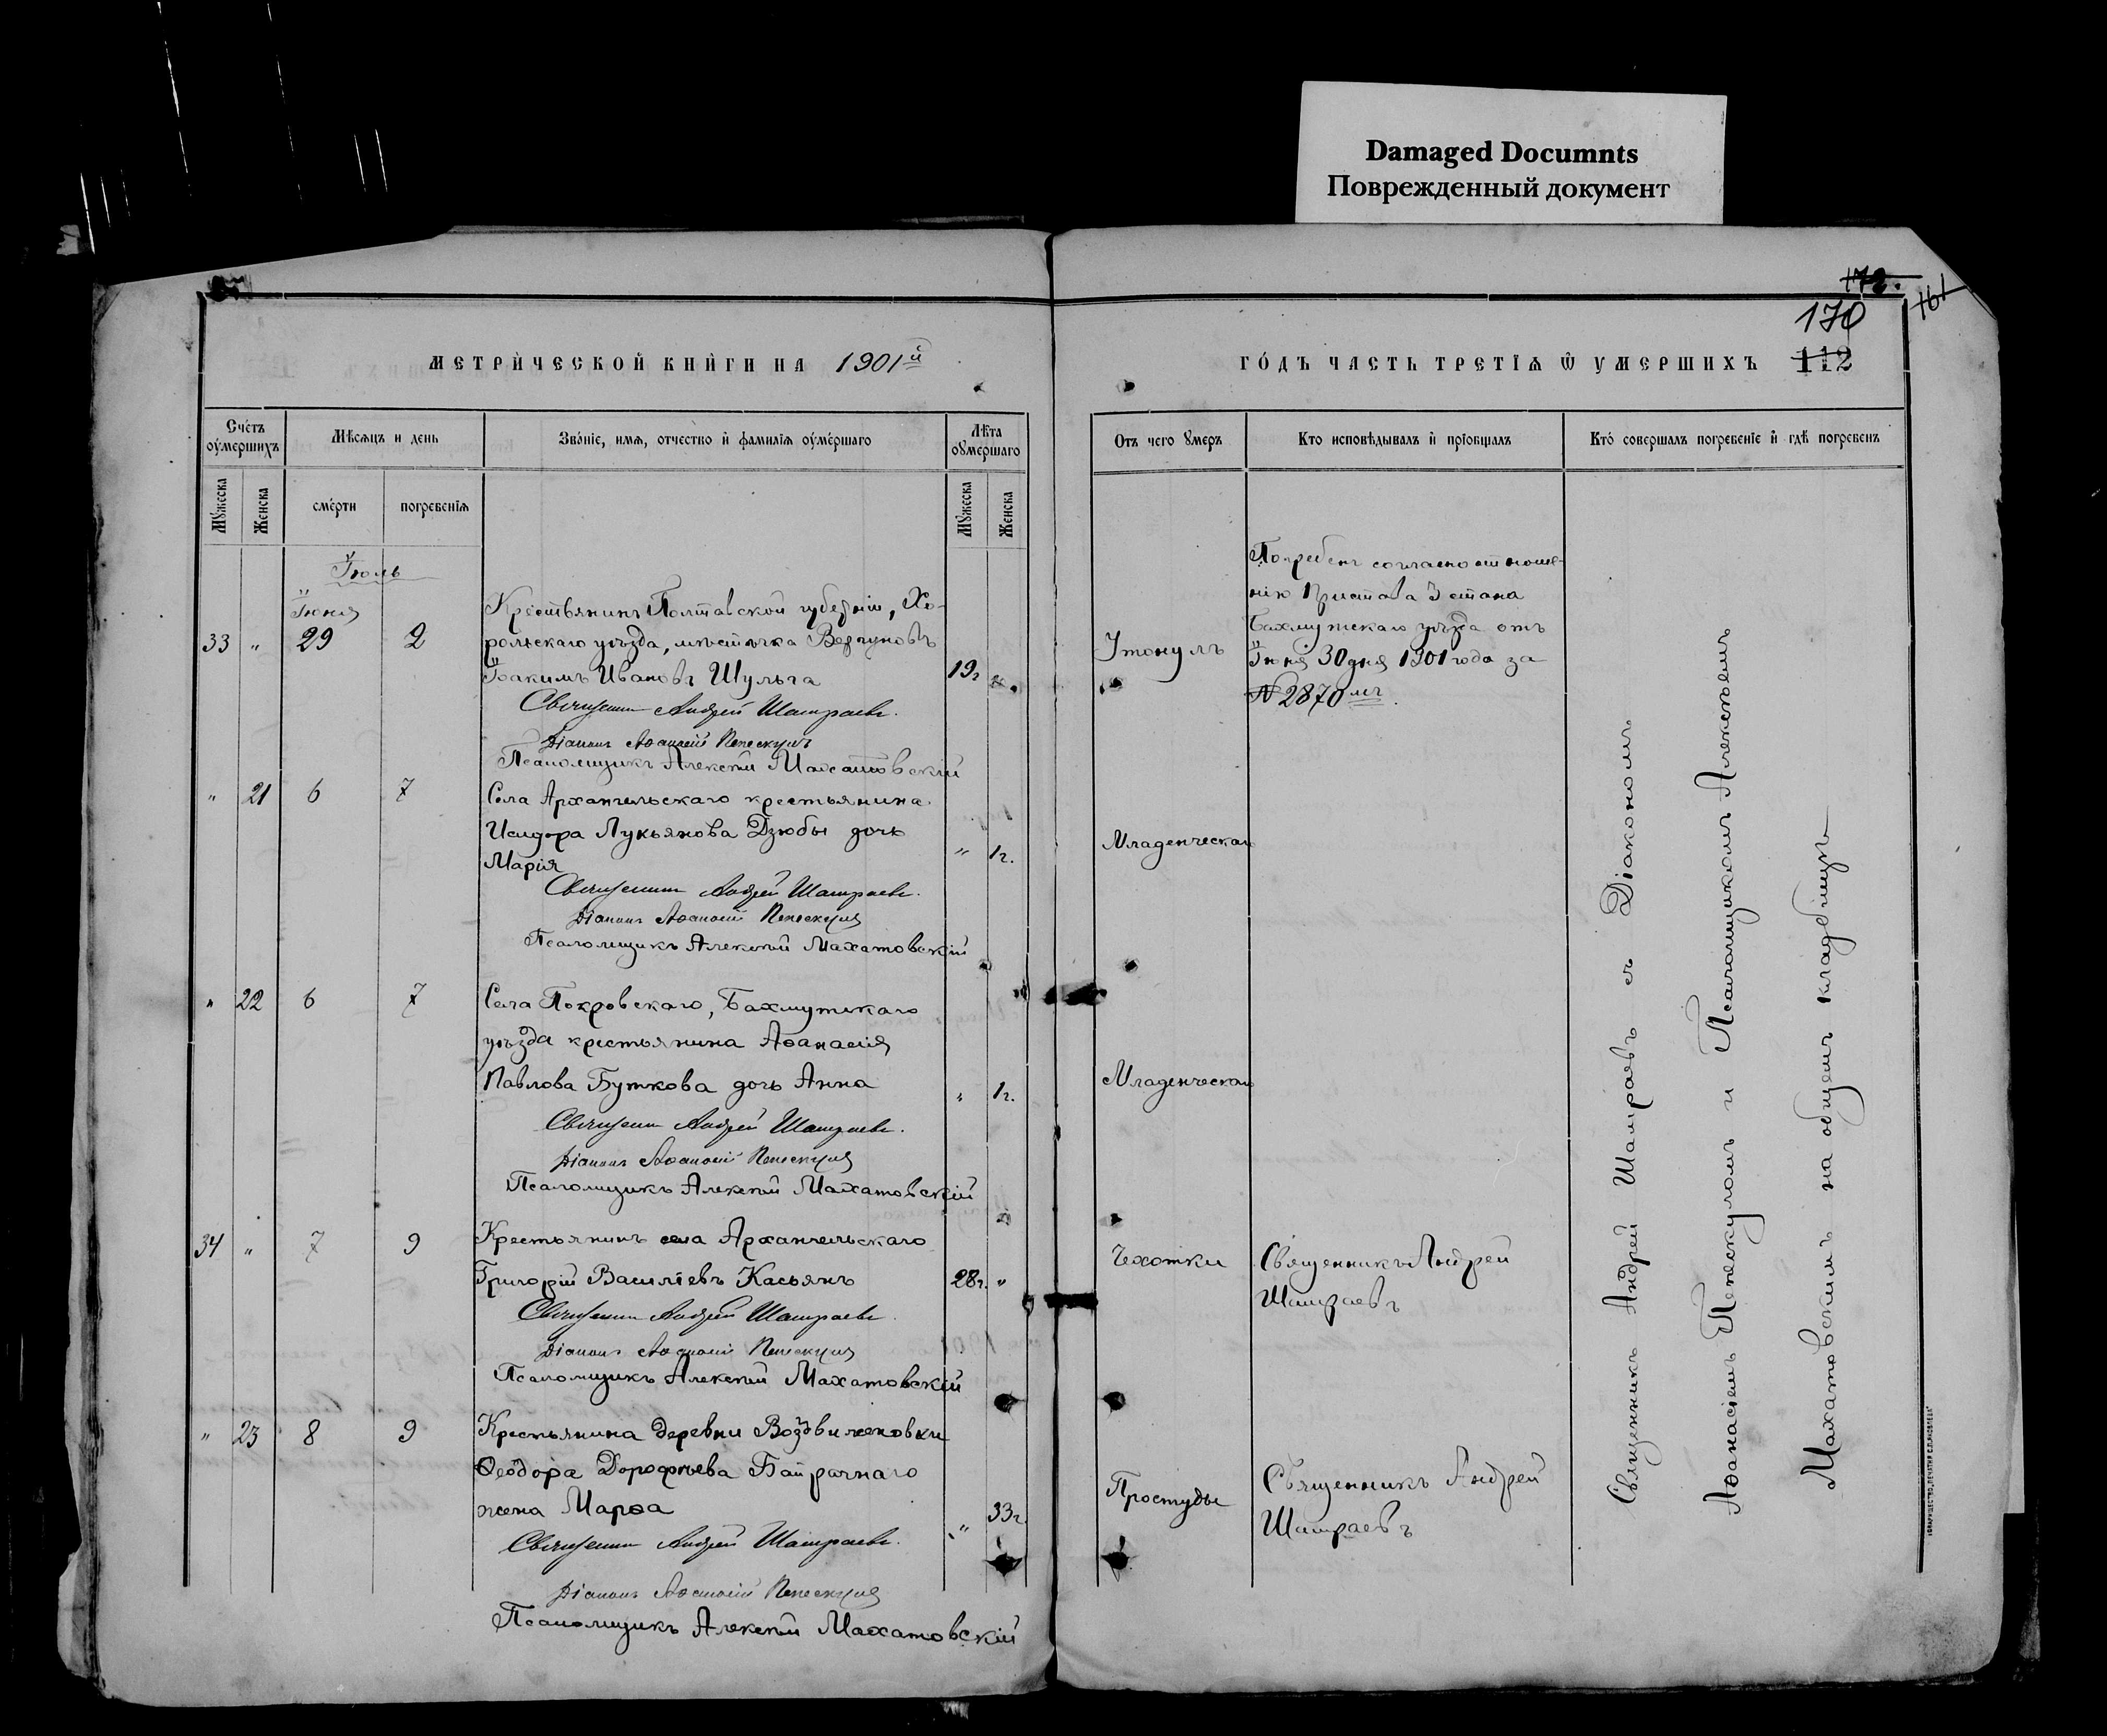 Damaged Documnts
Поврежденный документ
172.
161
170
112
МЕТРИЧЕСКОЙ КНИГИ НА 1901й
ГОДЪ ЧАСТЬ ТРЕТІЯ Ѿ УМЕРШИХЪ
Счетъ оумершихъ
Мѣсяцъ и день
Званіе, имя, отчество и фамилія оумершаго
Лѣта оумершаго
Мужеска
Женска
смерти
погребенія
Мужеска
Женска
Отъ чего умеръ
Кто исповѣдывалъ и пріобщалъ
Кто совершалъ погребеніе и гдѣ погребенъ
Іюль
Іюня
33 " 29 2
Крестьянинъ Полтавской губерніи, Хо-
рольскаго уѣзда, мѣстечка
Іоакимъ Ивановъ Шульга 19г
Священникъ Андрей Шатраевъ.
Діаконъ Аѳанасій Пепескулъ
Псаломщикъ Алексѣй Махатовскій
Утонулъ
Погребенъ согласно отноше-
нію Пристава 3 стана
Бахмутскаго уѣзда отъ
Іюня 30 дня 1901 года за
№ 2870мъ.
" 21 6 7
Села Архангельскаго крестьянина
Исидора Лукьянова Дзюбы дочь
Марія " 1г.
Священникъ Андрей Шатраевъ.
Діаконъ Аѳанасій Пепескулъ
Псаломщикъ Алексѣй Махатовскій
Младенческая
" 22 6 7
Села Покровскаго, Бахмутскаго
уѣзда крестьянина Аѳанасія
Павлова Буткова дочь Анна " 1г.
Священникъ Андрей Шатраевъ.
Діаконъ Аѳанасій Пепескулъ
Псаломщикъ Алексѣй Махатовскій
Младенческая
34 " 7 9
Крестьянинъ села Архангельскаго
Григорій Василіевъ Касьянъ 28г. "
Священникъ Андрей Шатраевъ
Діаконъ Аѳанасій Пепескулъ
Псаломщикъ Алексѣй Махатовскій
Чахотки
Священникъ Андрей
Шатраевъ
" 23 8 9
Крестьянина деревни Воздвиженовки
Ѳеодора Дорофѣева Байрачнаго
жена Марѳа " 33г
Священникъ Андрей Шатраевъ.
Діаконъ Аѳанасій Пепескулъ
Псаломщикъ Алексѣй Махатовскій
Простуды
Священникъ Андрей
Шатраевъ
Священникъ Андрей Шатраевъ съ Діакономъ
Аѳанасіемъ Пепескуломъ и Псаломщикомъ Алексѣемъ
Махатовскимъ на общемъ кладбищѣ